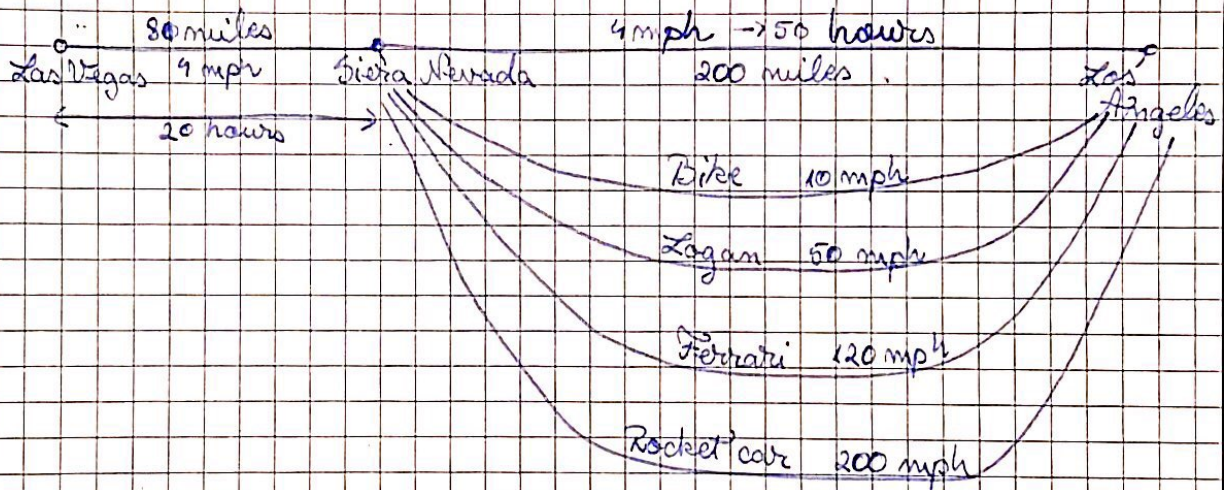 80 miles
4 mph → 50 hours
Las Vegas 4 mph Siera Nevada 200 miles. Los
Angeles
20 hours
Bike 10 mph
Logan 50 mph
Ferrari 120 mph
Rocket car 200 mph